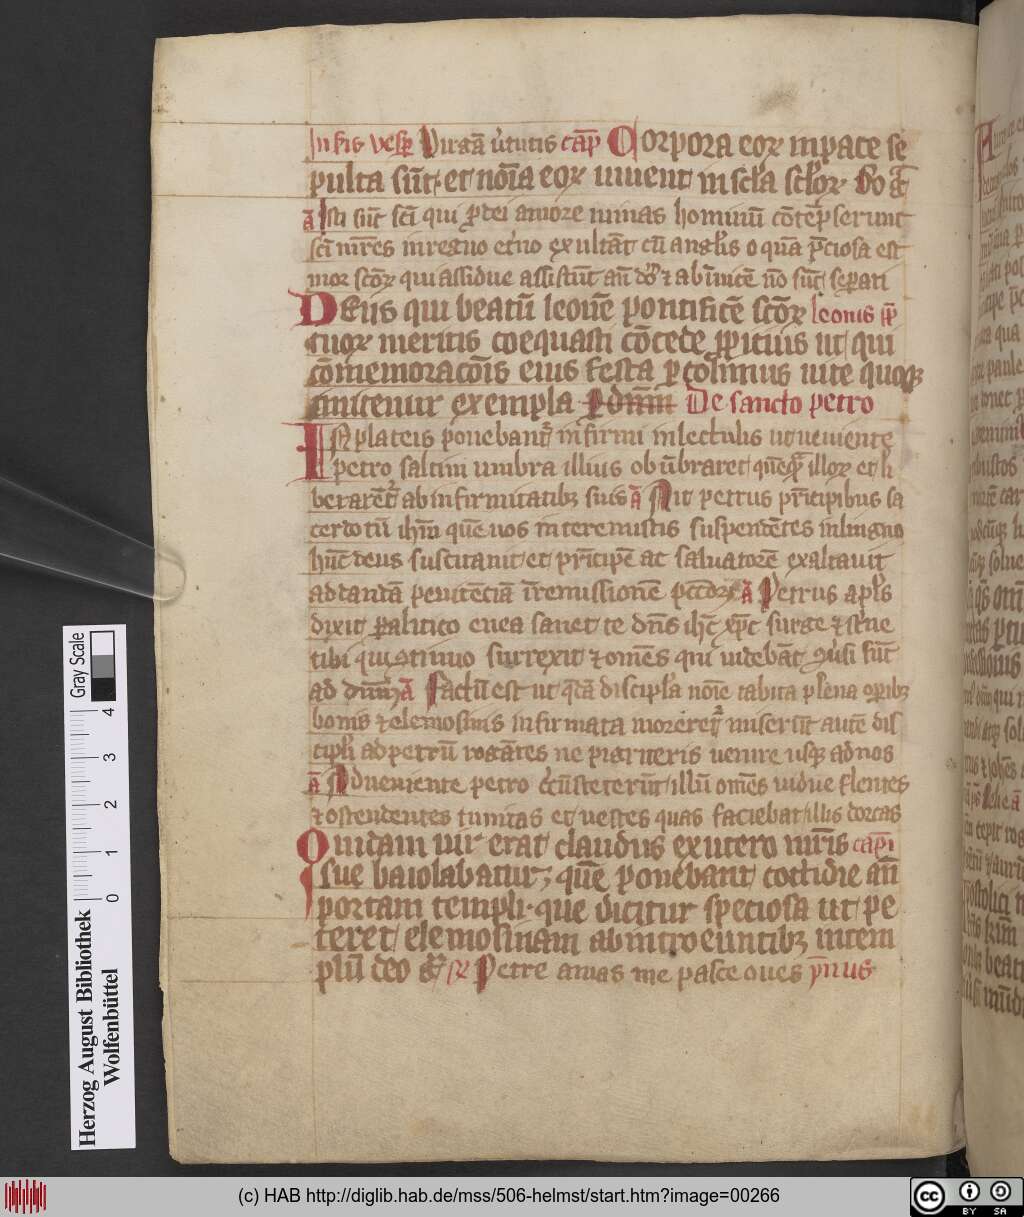 In ſcis veſp̄ Virgā v̾tutis cap̄ Corpora eoꝝ in pace ſe
pulta ſūt et noīa eoꝝ uiuent in ſcl̄a ſcl̄oꝝ
ā Iſti ſūt ſcī qui ꝓ dei amore minas hominū cōtēpſerunt
ſcī mr̄es in regno et̾no exultāt cū angl̄is o quā p̄cioſa eſt
mor ſcōꝝ qui aſſidue aſſiſtūt añ dō̄ ⁊ ab īuicē nō ſūt ſeꝑati
Deus qui beatū leonē pontificē ſcōꝝ leonis pp̄
tuoꝝ meritis coequaſti cōcede ꝓpitius ut qui
cōmemoracōis eius feſta ꝑcolimus uite quoqꝫ
imitemur exempla De sancto petro
IN plateis ponebant̾ infirmi in lectulis ut ueniente
petro ſaltim umbra illius obūbraret quēqꝫ illoꝝ et li
berarēt̾ ab infirmitatibꝫ ſuis ā Ait petrus prīcipibus ſa
cerdotū ihm̄ quē uos interemiſtis ſuſpendētes in ligno
hūc deus ſuſcitauit et prīcipē ac ſaluatorē exaltauit
ad dandā penitēciā ī remiſſionē pcc̄oꝝ ā Petrus apl̄s
dixit ꝑalitico enea ſanet te dn̄s ihc̄ xp̄c ſurge ⁊ ſt̾ne
tibi qui ꝯtinuo ſurrexit ⁊ om̄es qui uidebāt ꝯuſi ſūt
ad dnm̄ ā Factū eſt ut q̄dā diſcipl̄a noīe tabita plena oꝑibꝫ
bonis ⁊ elemoſinis infirmata moreret̾ miſerūt autē diſ
cipl̄i ad petrū rogātes ne pigriteris uenire uſqꝫ ad nos
ā Adueniente petro cͥcūſteterūt illū om̄es uidue flentes
⁊ oſtendentes tunicas et ueſtes quas faciebat illis dorcas
Quidam uir erat claudus ex utero mr̄is capi
ſue baiolabatur, quē ponebant cottidie añ
portam templi que dicitur ſpecioſa ut pe
teret elemoſinam ab introeuntibꝫ in tem
plū deo gr̄ ℟ Petre amas me paſce oues p̄mus
Herzog August Bibliothek
Wolfenbüttel
0 1 2 3 4
Gray Scale
(c) HAB http://diglib.hab.de/mss/506-helmst/start.htm?image=00266
cc BY SA